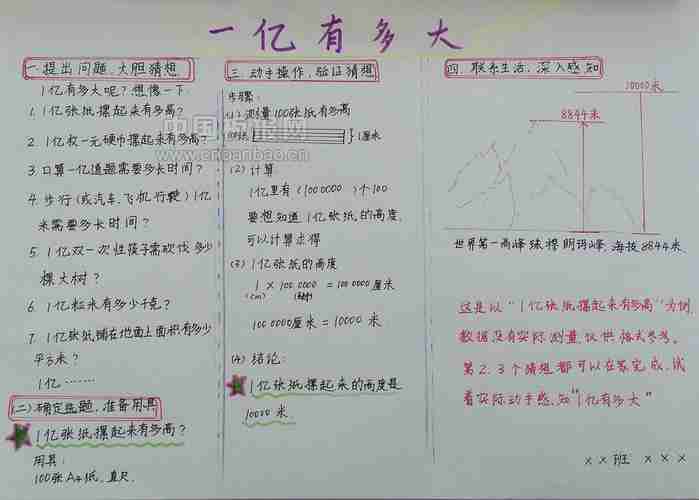 一亿有多大
一.提出问题,大胆猜想
1亿有多大呢?想像一下.
1. 1亿张纸摞起来有多高?
2. 1亿枚一元硬币摞起来有多高?
3.口算一亿道题需要多长时间?
4.步行(或汽车.飞机行驶)1亿
米需要多长时间?
5. 1亿双一次性筷子需砍伐多少
棵大树?
6. 1亿粒米有多少千克?
7. 1亿张纸铺在地面上面积有多少
平方米?
1亿……
(二)确定选题,准备用具
1亿张纸摞起来有多高?
用具:
100张A4纸.直尺.
三.动手操作,验证猜想
步骤:
(1)测量100张纸有多高
100张
1厘米
(2)计算
1亿里有(1000000)个100
要想知道1亿张纸的高度,
可以计算求得
(3)1亿张纸的高度
1×1000000=1000000厘米
(cm)
1000000厘米=10000米
(4)结论:
1亿张纸摞起来的高度是
10000米
四.联系生活,深入感知
10000米
8844米
世界第一高峰珠穆朗玛峰,海拔8844米.
这是以"1亿张纸摞起来有多高"为例,
数据没有实际测量,仅供格式参考。
第2.3个猜想都可以在家完成,试
着实际动手感知"1亿有多大"
××班 ×××
中国板报网